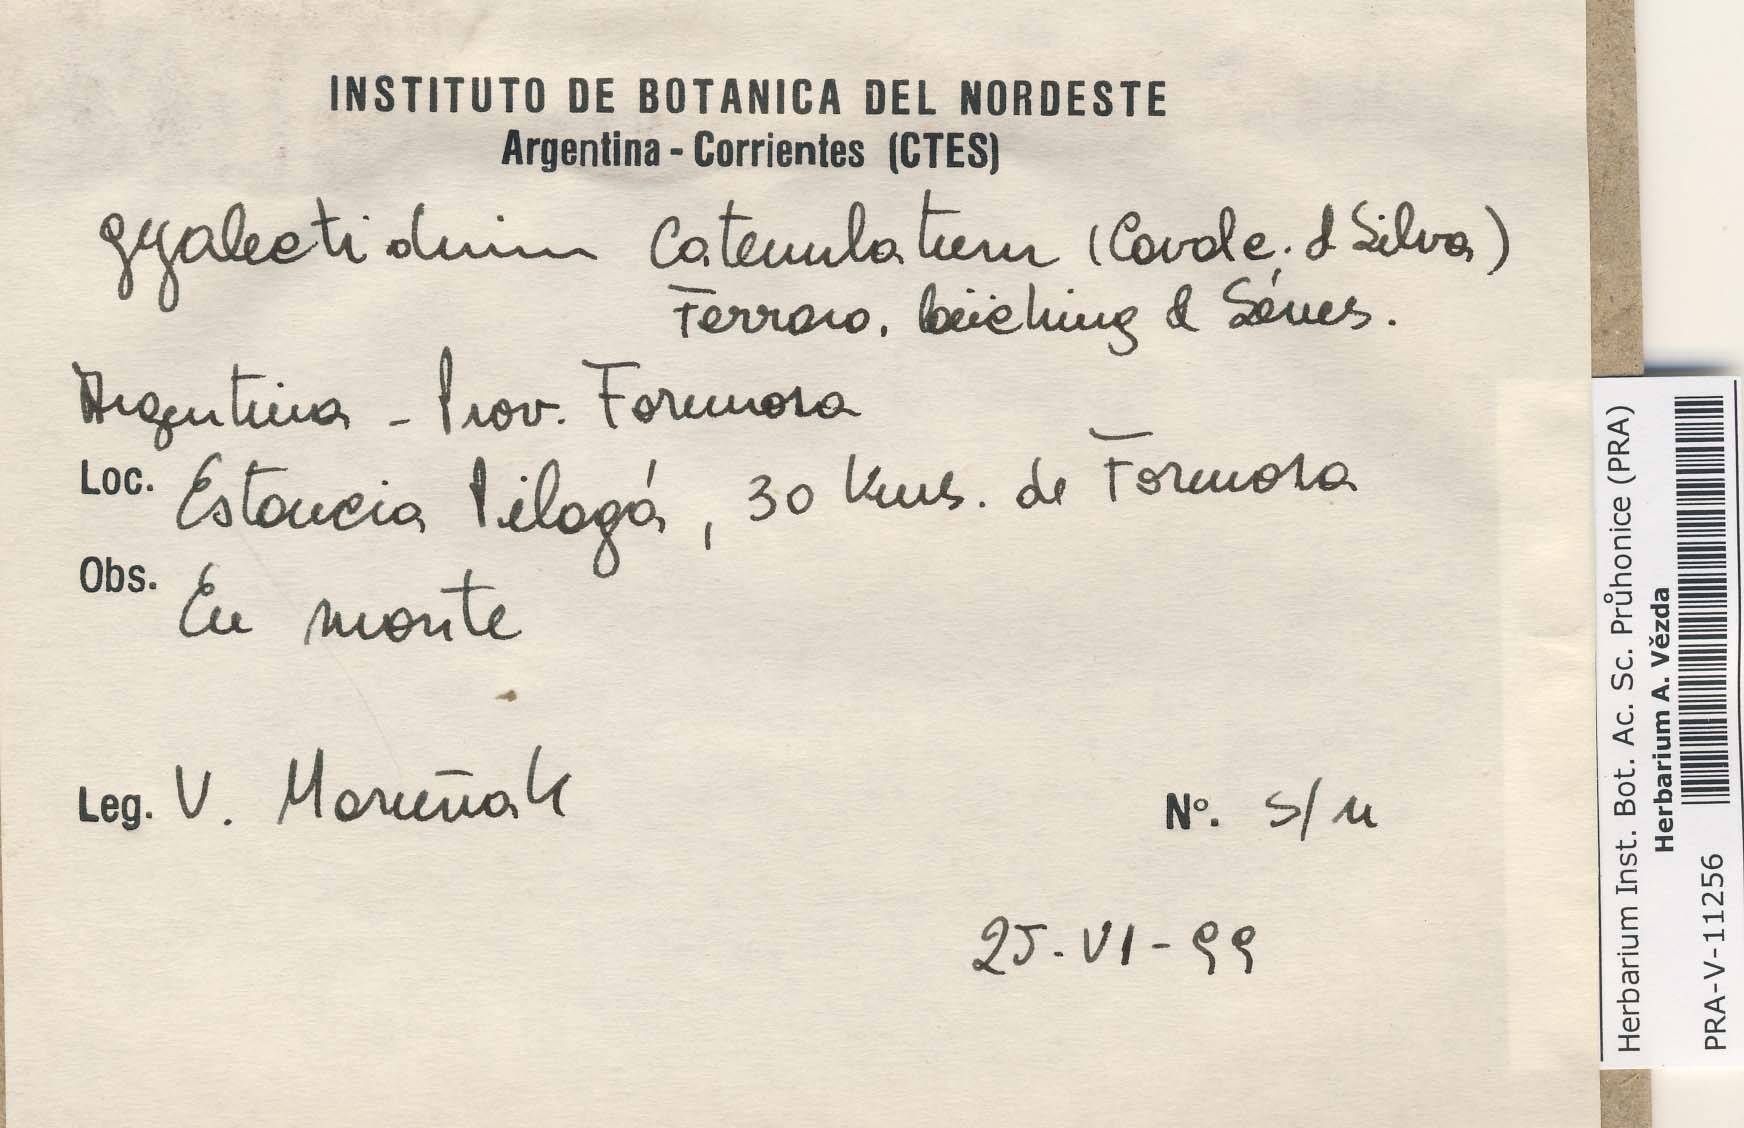 INSTITUTO DE BOTANICA DEL NORDESTE
Argentina - Corrientes (CTES)
Gyalectidium Catenulatum (Cavalc. & Silva)
Ferraro, Lücking & Sérus.
Argentina - Prov. Formosa
Loc. Estancia Pilagá, 30 Kms. de Formosa
Obs. En monte
Leg. V. Maruñak
Nº. s/n
25-VI-99
Herbarium Inst. Bot. Ac. Sc. Průhonice (PRA)
Herbarium A. Vězda
PRA-V-11256